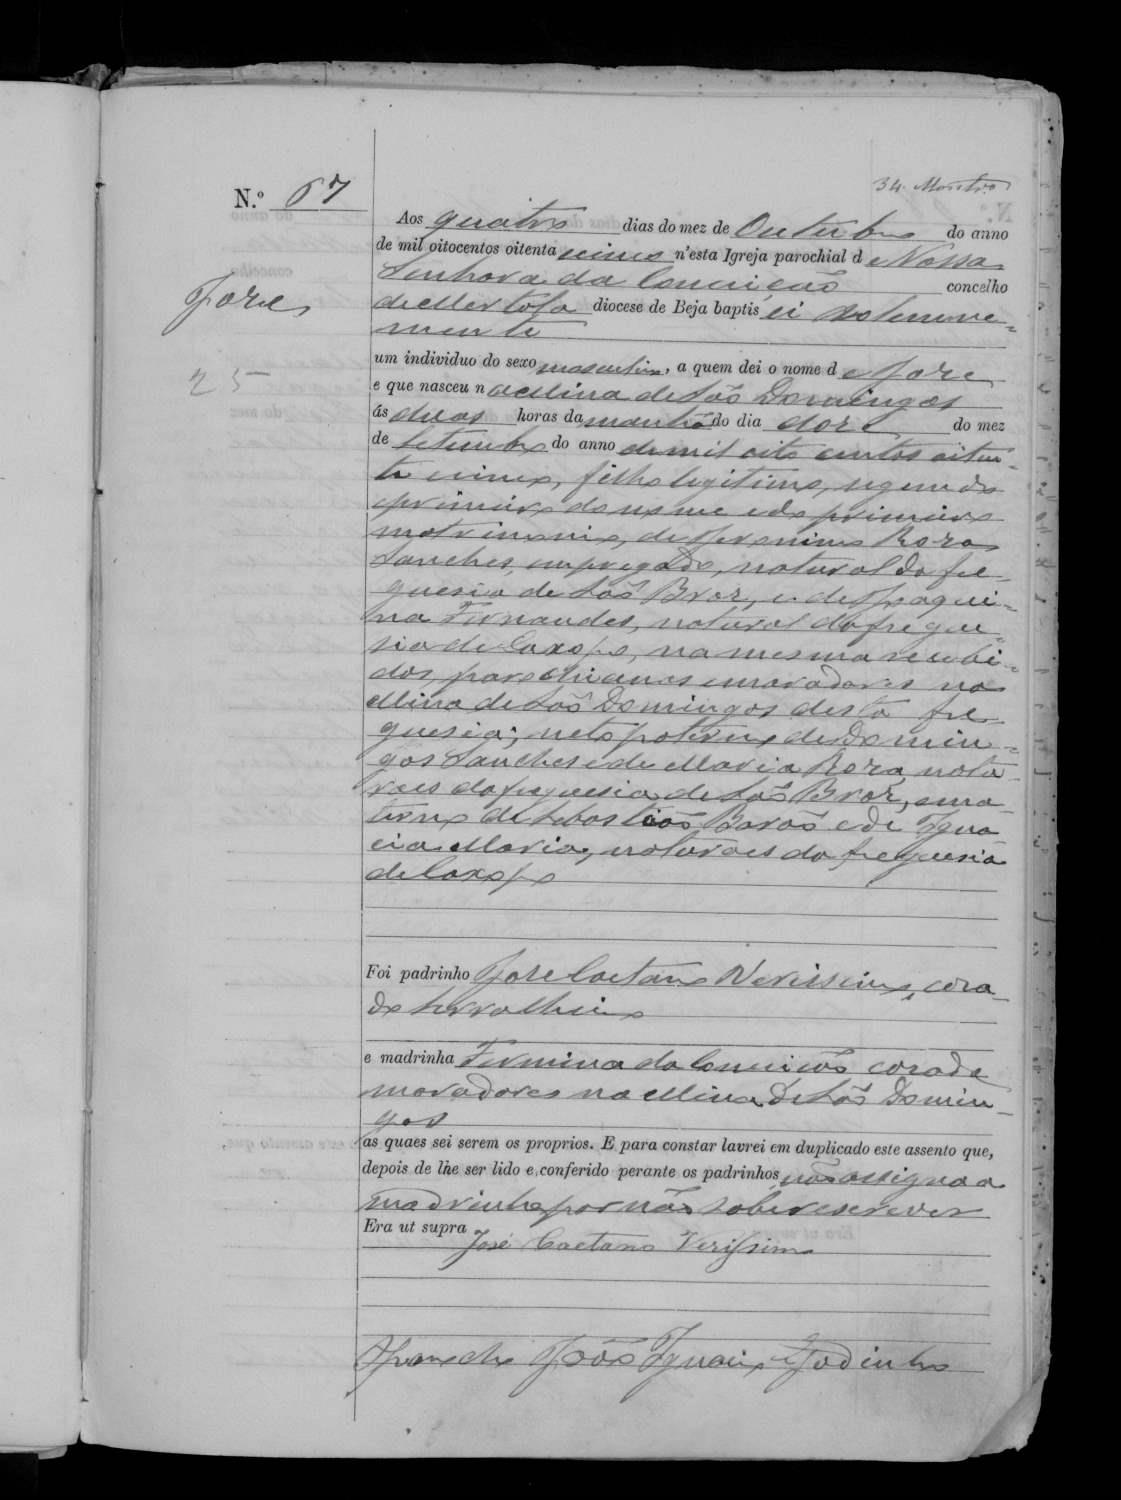 34
N.º 67
Aos quatro dias do mez de Outubro do anno
de mil oitocentos oitenta cinco n'esta Igreja parochial de Nossa
Senhora da Conceição concelho
de Mertola diocese de Beja baptisei solemne-
mente
José
um individuo do sexo masculino, a quem dei o nome de José
25
e que nasceu na Mina de São Domingos
ás duas horas da manhã do dia doze do mez
de Setembro do anno de mil oito centos oiten-
ta cinco, filho legitimo, segundo
primeiro do nome e do primeiro
matrimonio, de Jeronimo Rosa
Sanches, empregado, natural da fre-
guesia de São Braz, e de Joaqui-
na Fernandes, natural da fregue-
sia de Caxopo, na mesma recebi-
dos, parochianos e moradores na
Mina de São Domingos desta fre-
guesia; neto paterno de Domin-
gos Sanches e de Maria Rosa, natu-
raes da freguesia de São Braz, e ma-
terno de Sebastião Barão e de Igna-
cia Maria, naturaes da freguesia
de Caxopo
Foi padrinho José Caetano Verissimo, casa-
do serralheiro
e madrinha Firmina da Conceição casada
moradores na Mina de São Domin-
gos
as quaes sei serem os proprios. E para constar lavrei em duplicado este assento que,
depois de lhe ser lido e conferido perante os padrinhos não assigna a
madrinha por não saber escrever
Era ut supra
José Caetano Verissimo
O Parocho João Ignacio Godinho